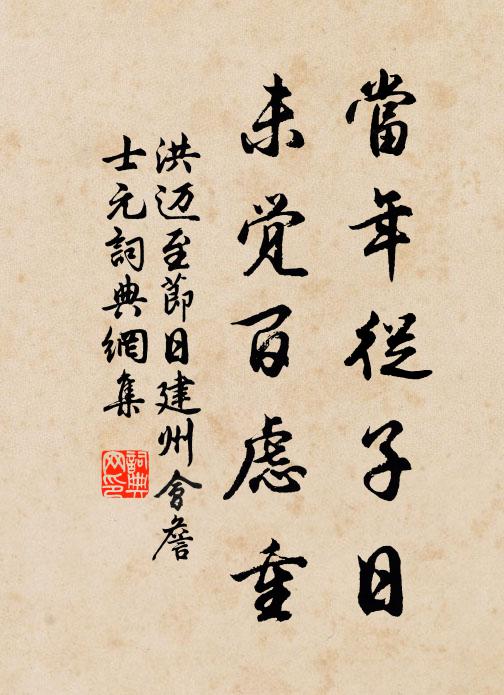 當年從子日
未觉百慮重
洪迈至節日建州會詹
士元詞典網集
詞典
网印